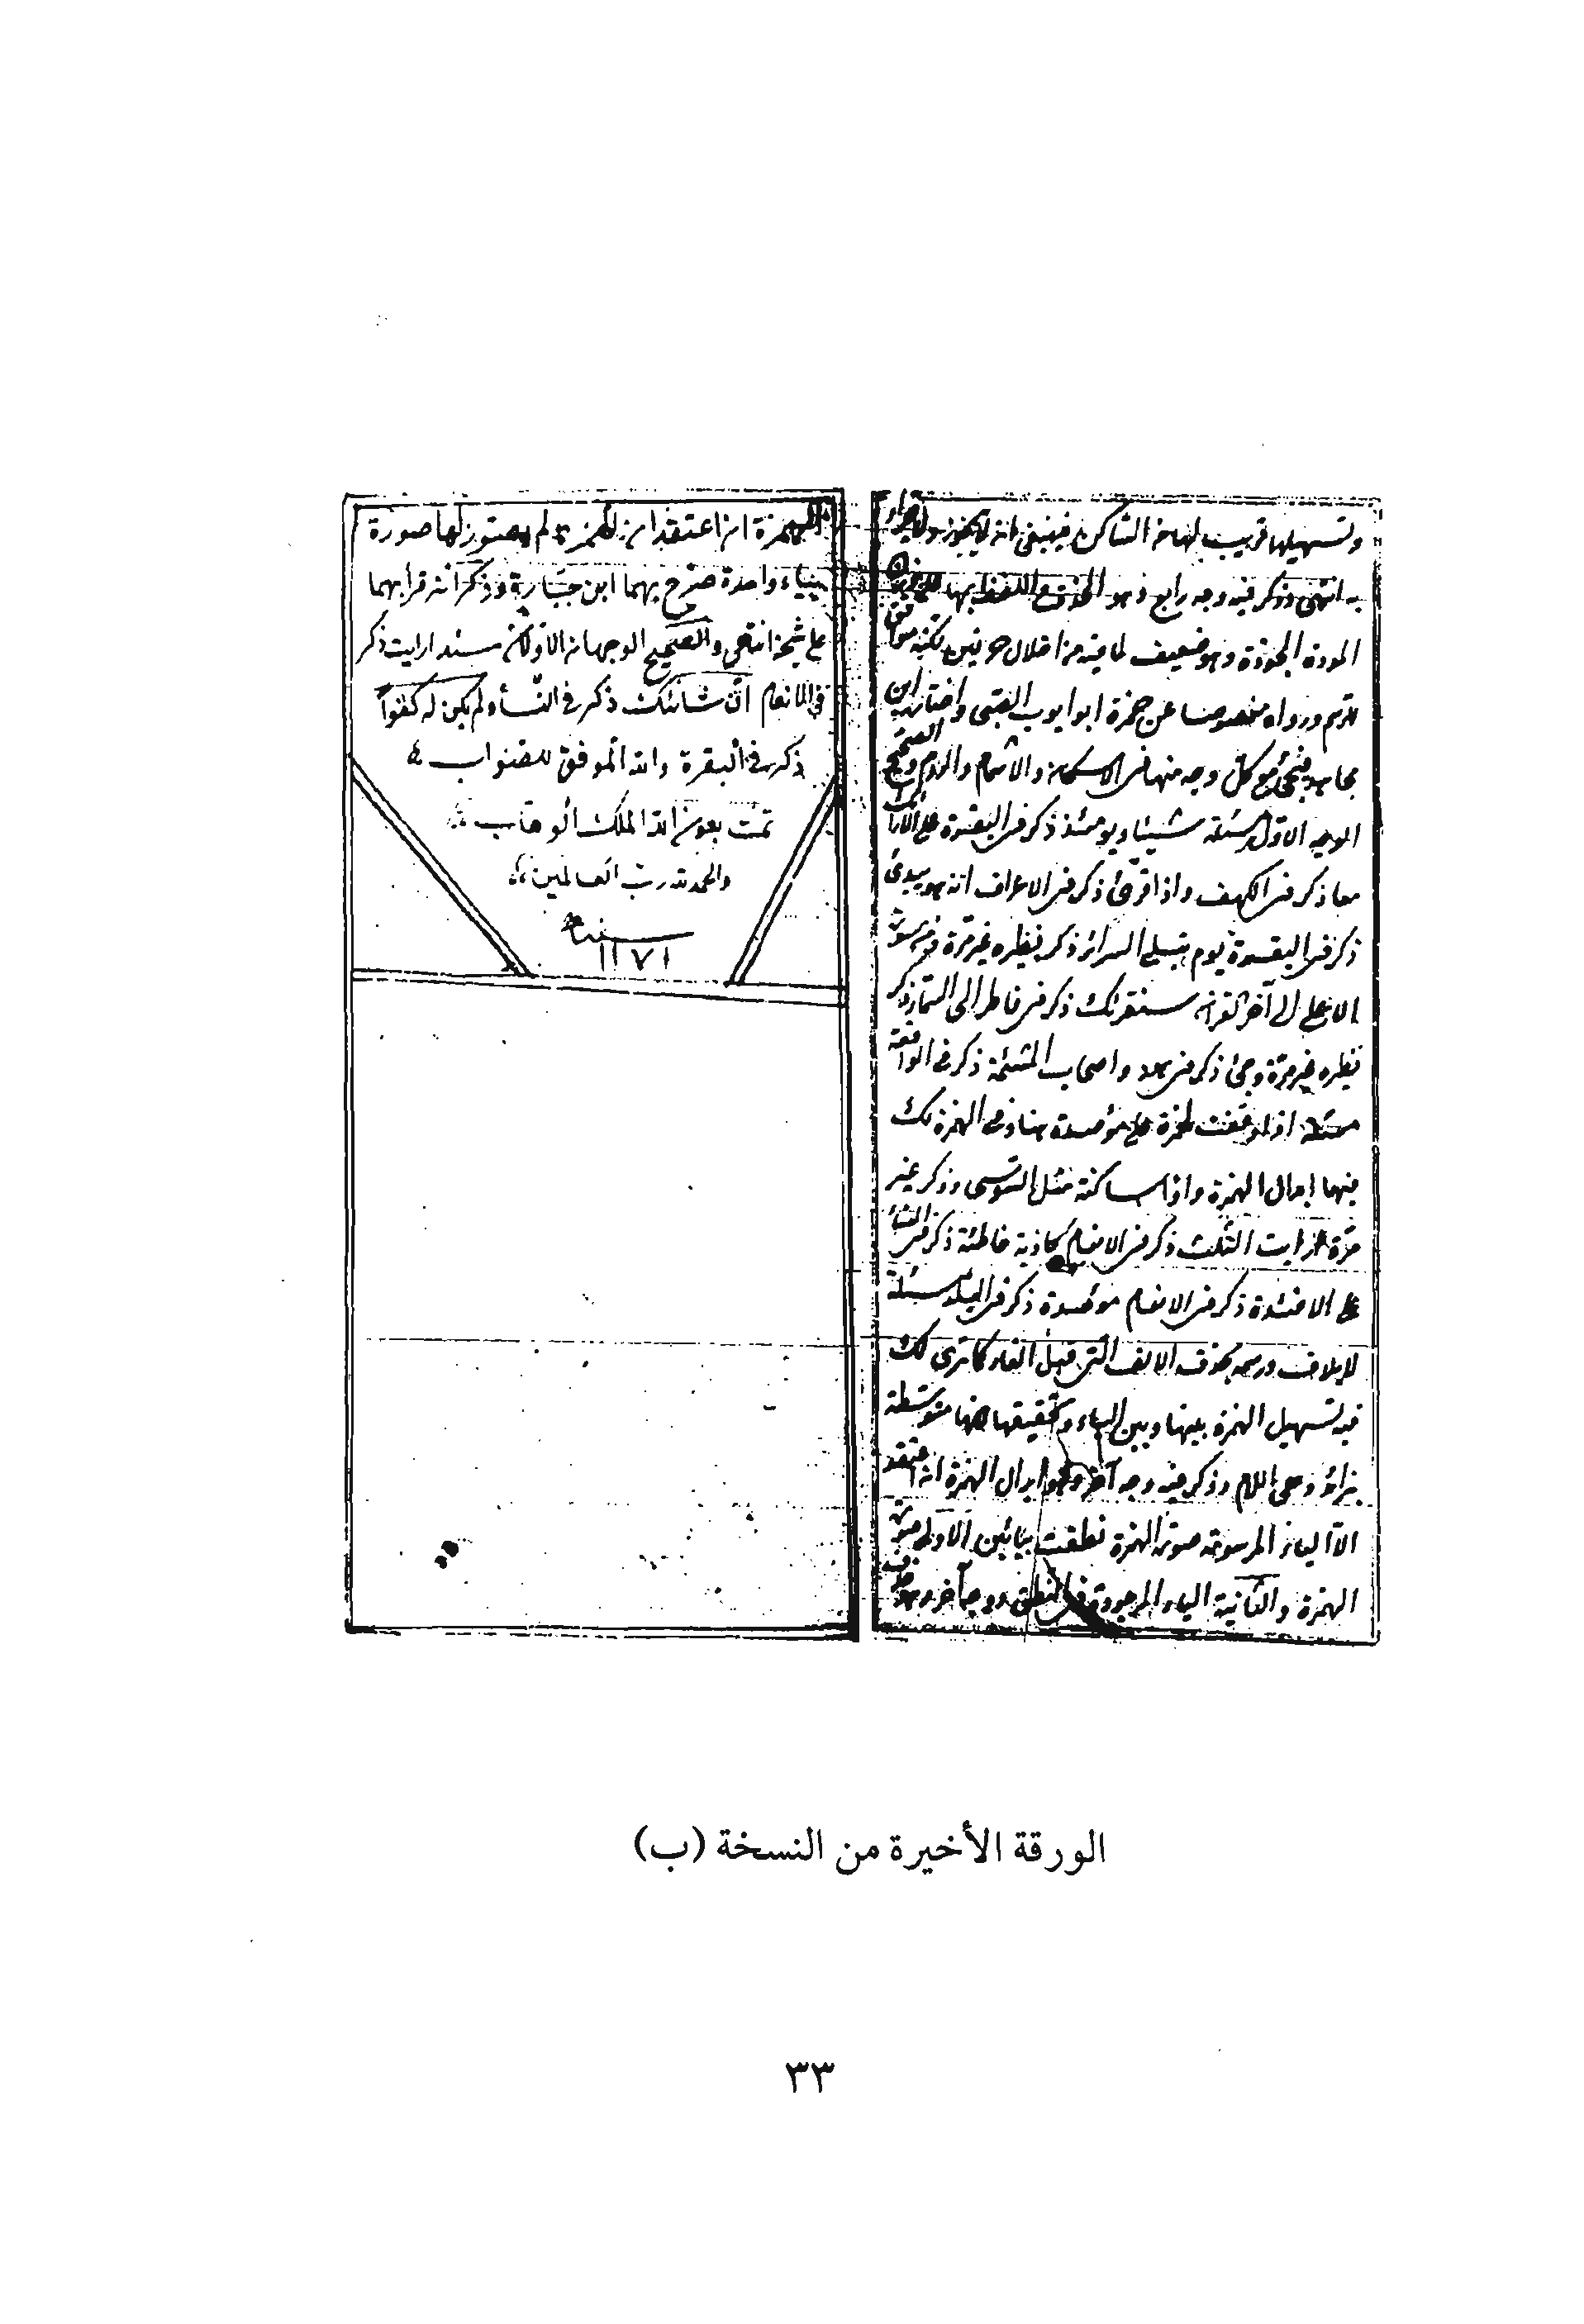 وتسهيلها قريب لها من الساكن فينبغي انه لا يجوز ولا
به انتهى وذكر فيه وجه رابع وهو الحذف واللفظ بها
المودة الجوزة وهو ضعيف لما فيه من اخلال حرفين لكنه موافق
للرسم ورواه منصوصا عن حمزة ابو ايوب الضبي واختاره ابن
مجاهد فيجئ مع كل وجه منها في الاسكان والاشمام والروم والصحيح
الوجه الاول مسئلة شيئا ويومئذ ذكر في البقرة على الارائك
معا ذكر في الكهف واذا قرئ ذكر في الاعراف انه هو يبدئ
ذكر في البقرة يوم تبلى السرائر ذكر نظيره غير مرة ومن سورة
الاعلى الى آخر القرآن سنقرئك ذكر في فاطر الى السماء ذكر
نظيره غير مرة وجئ ذكر في هود واصحاب المشئمة ذكر في الواقعة
مسئلة اذا وقفت لحمزة على مؤصدة هنا وفي الهمزة لك
فيهما ابدال الهمزة واوا ساكنة مثل السوسي وذكر غير
مرة ارايت الثلث ذكر في الانعام كاذبة خاطئة ذكر في النساء
على الافئدة ذكر في الانعام موصدة ذكر في البلد مسئلة
لإيلاف ورسمه بحذف الالف التي قبل الفاء كما ترى لك
فيه تسهيل الهمزة بينها وبين الياء وتحقيقها لانها متوسطة
بزائد وهي اللام وذكر فيه وجه آخر وهو ابدال الهمزة
الياء المرسومة صورة الهمزة نطقت بيائين الاولى صورة
الهمزة والثانية الياء الموجودة في النطق ووجه آخر وهو حذف
الهمزة ان اعتقد ان الهمزة لم يصور لها صورة
بياء واحدة صرح بهما ابن جبارة وذكر انه قرا بهما
على شيخه انتهى والصحيح الوجهان الاولان مسئلة ارايت ذكر
في الانعام ان شانئك ذكر في النساء ولم يكن له كفوا
ذكر في البقرة والله الموفق للصواب
تمت بعون الله الملك الوهاب
والحمد لله رب العالمين
سنة
١١٧١
الورقة الأخيرة من النسخة (ب)
٣٣